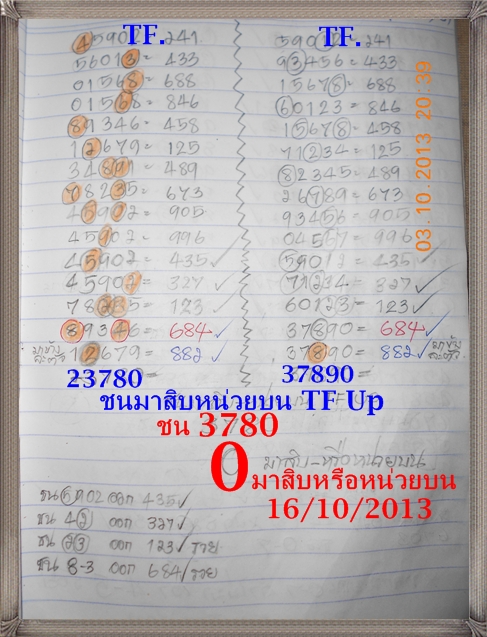 TF. TF.
45902 = 241 590 = 241
56013 = 433 93456 = 433
01568 = 688 15678 = 688
01568 = 846 60123 = 846
89346 = 458 15678 = 458
12679 = 125 71234 = 125
34891 = 489 82345 = 489
78235 = 673 26789 = 673
45902 = 905 93456 = 905
45902 = 996 04567 = 996
45902 = 435 ✓ 59012 = 435 ✓
45902 = 327 ✓ 71234 = 327 ✓
78235 = 123 ✓ 60123 = 123 ✓
89346 = 684 ✓ 37890 = 684 ✓
12679 = 882 ✓ 37890 = 882 ✓
23780 = 37890 =
ชนมาสิบหน่วยบน TF Up
ชน 3780
0 มาสิบ-หรือหน่วยบน
0 มาสิบหรือหน่วยบน
16/10/2013
ชน 5902 ออก 435 ✓
ชน 42 ออก 327 ✓
ชน 23 ออก 123 ✓ รวย
ชน 8-3 ออก 684 / รวย
03.10.2013 20:39